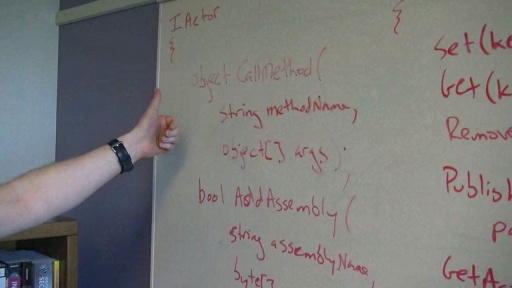 IActor
{
object CallMethod(
string methodName,
object[] args);
bool AddAssembly(
string assemblyName
byte[]
{
Set(k
Get(k
Remove
Publish
GetA